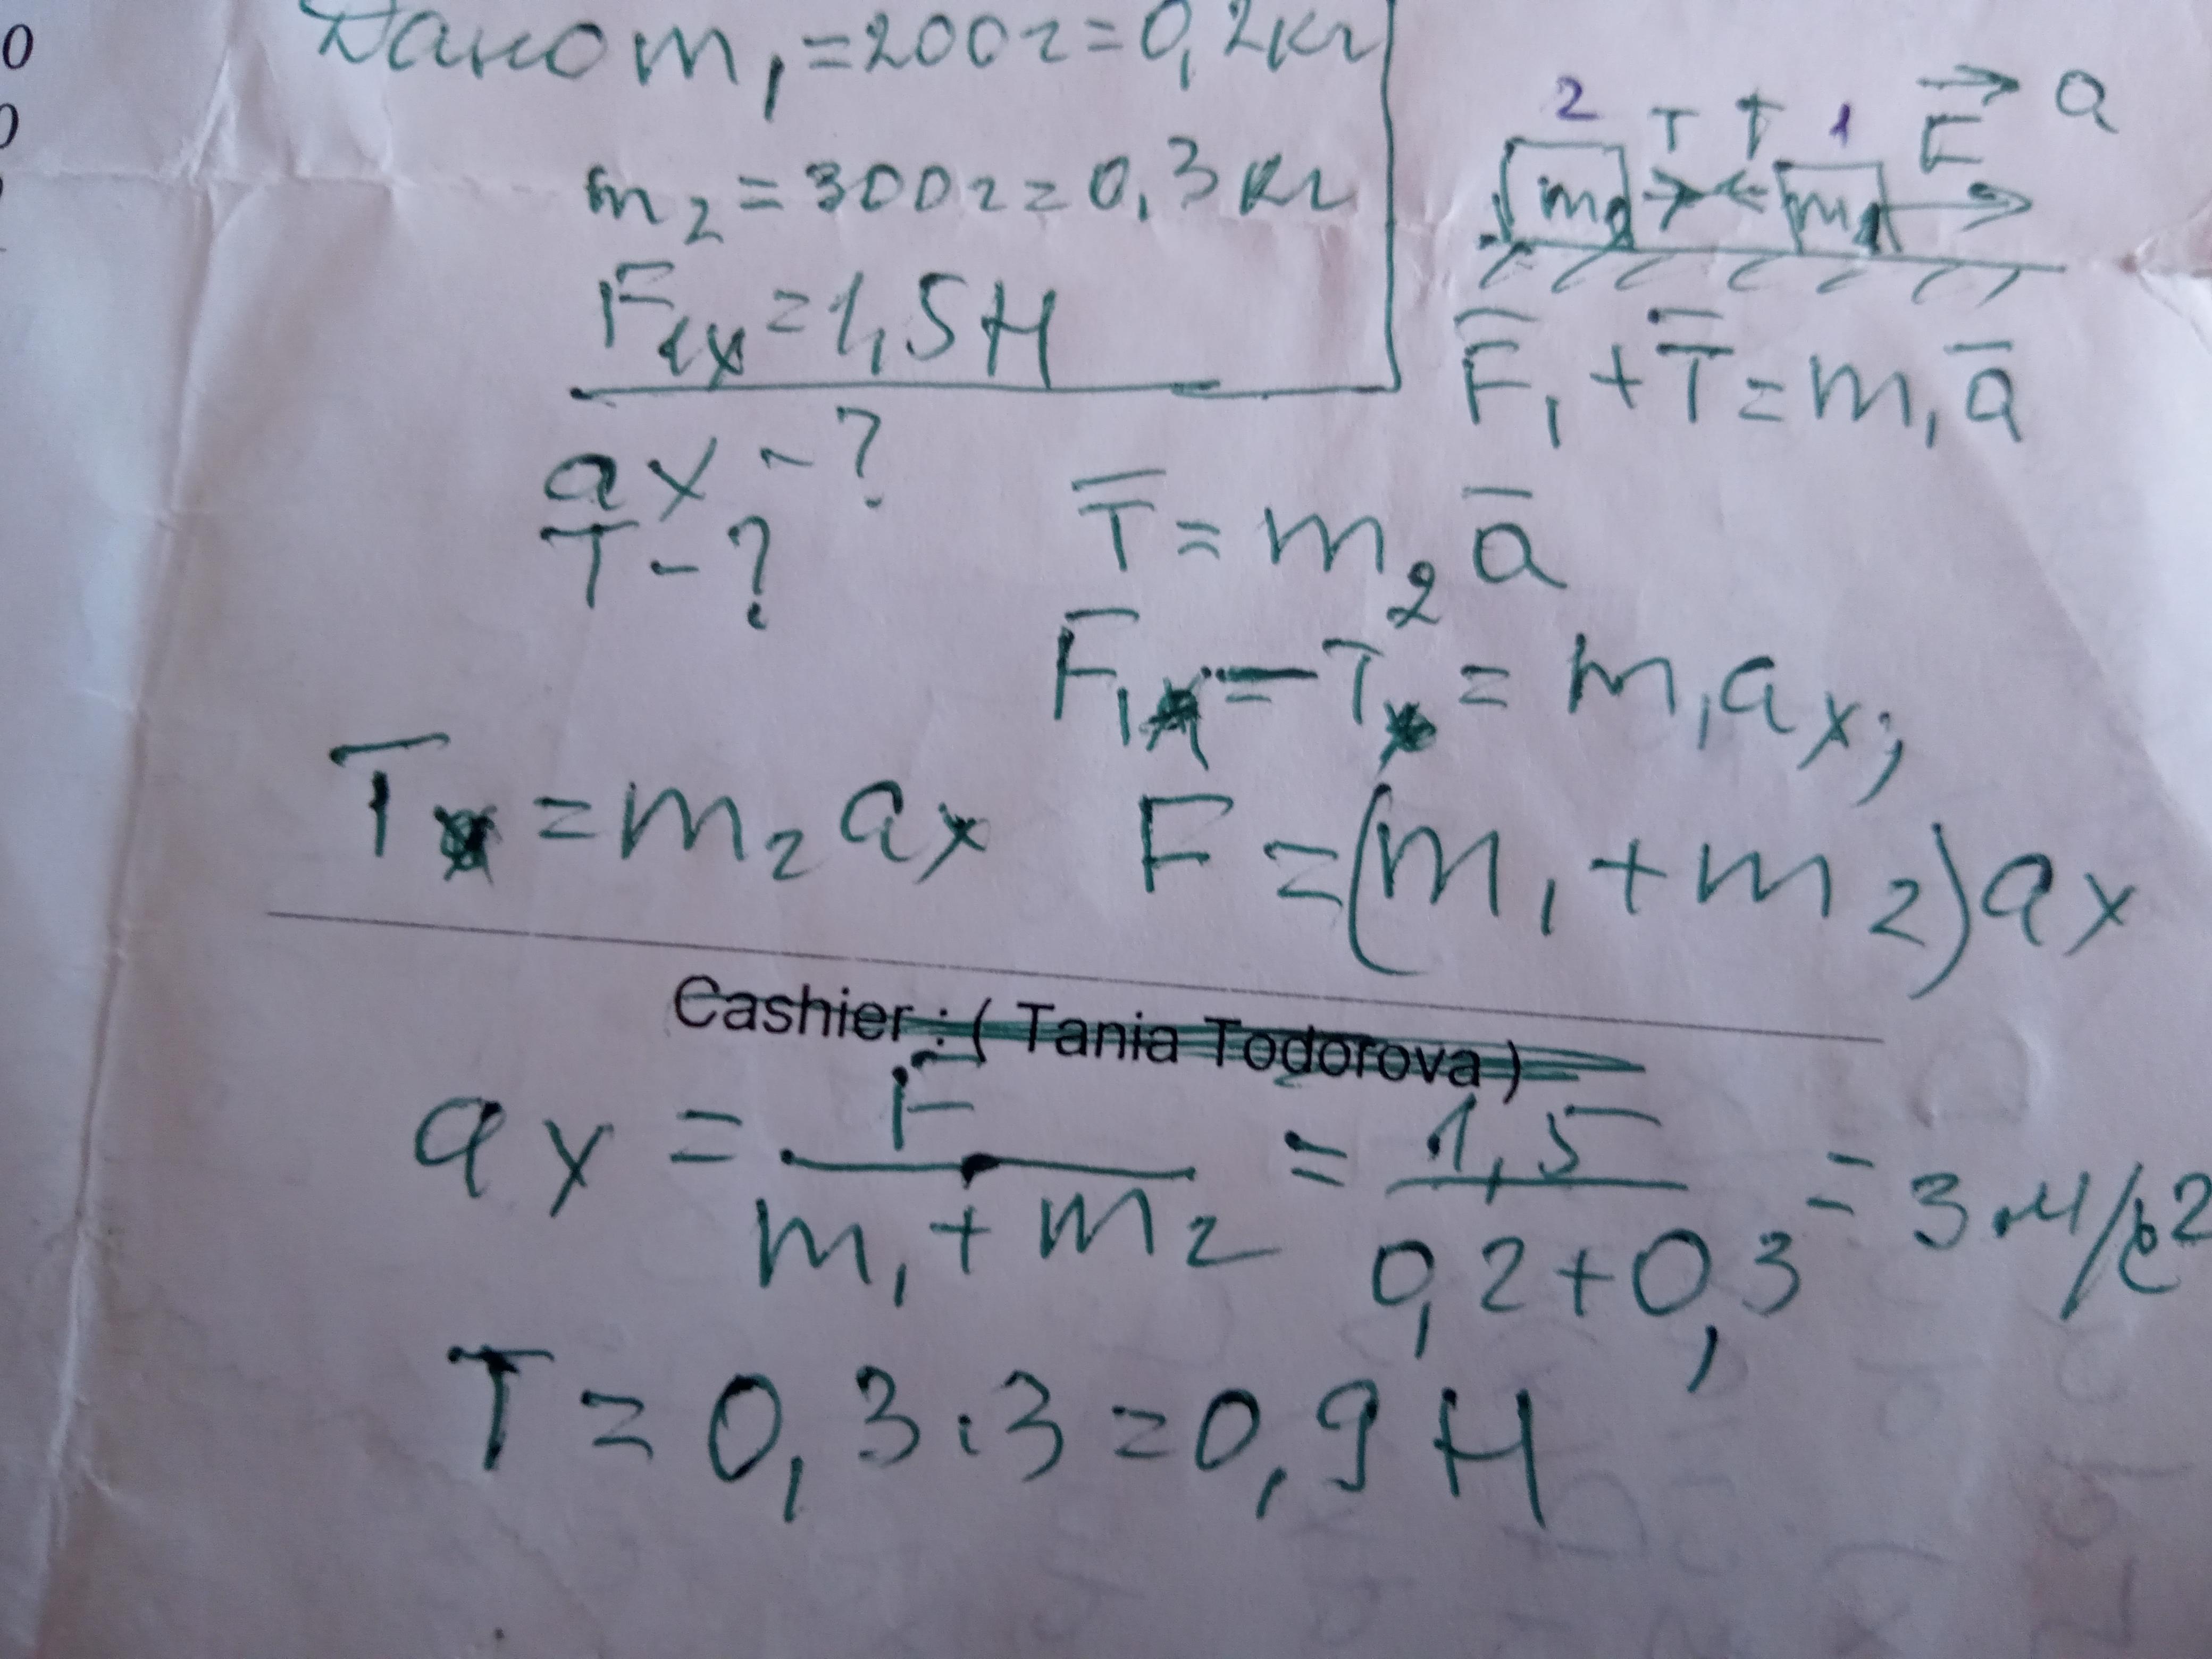 Дано m₁ = 200г = 0,2кг
m₂ = 300г = 0,3кг
F₁ₓ = 1,5Н
aₓ - ?
T - ?
2 T T 1 F a
m₂ m₁
F̅₁ + T̅ = m₁a̅
T̅ = m₂a̅
F₁ - T = m₁aₓ;
T = m₂aₓ F = (m₁ + m₂)aₓ
Cashier : ( Tania Todorova )
aₓ = F / (m₁ + m₂) = 1,5 / (0,2 + 0,3) = 3 м/с²
T = 0,3 · 3 = 0,9 Н